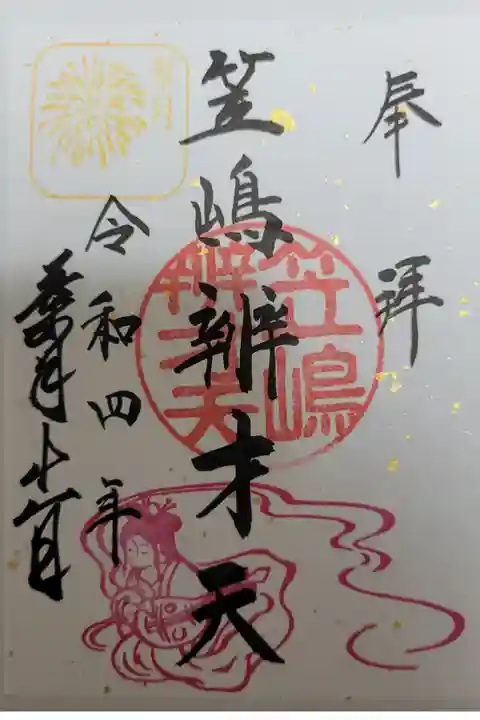 奉拝
笠嶋辨才天
令和四年
葉月十一日
葉月
笠嶋
辨天